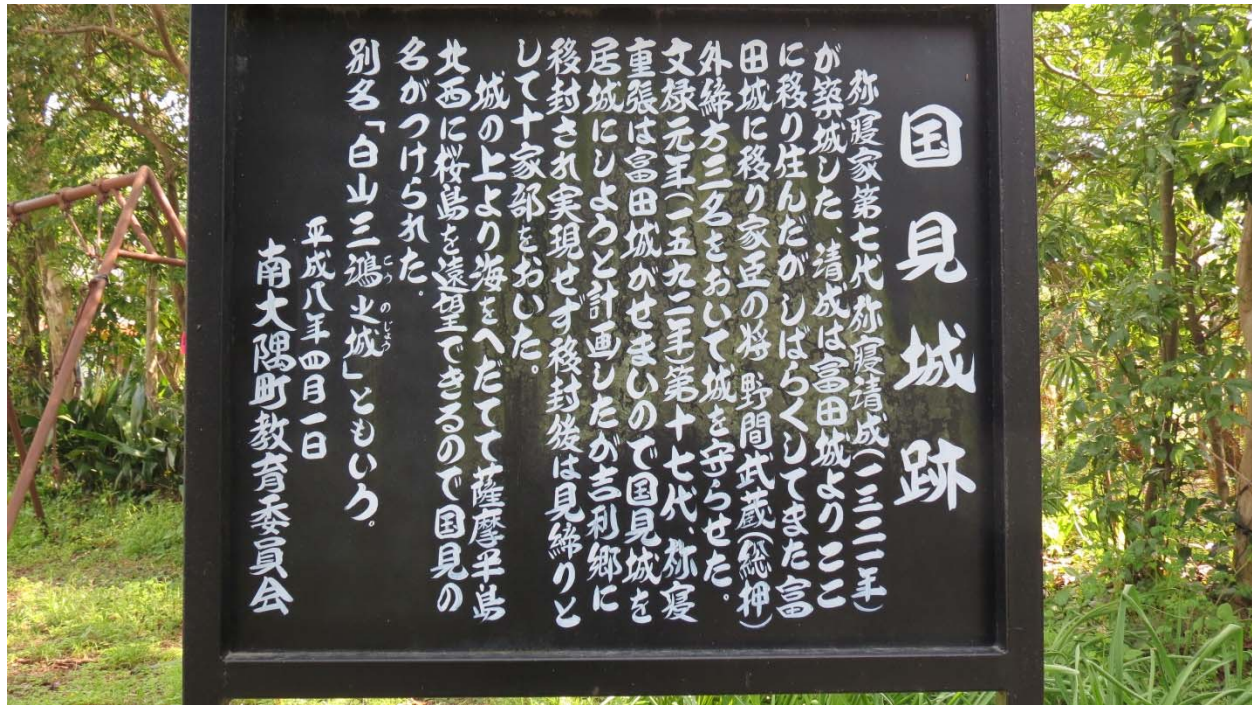 国見城跡
祢寝家第七代祢寝清成(一三二一年)
が築城した、清成は富田城よりここ
に移り住んだがしばらくしてまた富
田城に移り家臣の将、野間武蔵(総押)
外締方三名をおいて城を守らせた。
文禄元年(一五九二年)第十七代、祢寝
重張は富田城がせまいので国見城を
居城にしようと計画したが吉利郷に
移封され実現せず移封後は見締りと
して十家部をおいた。
城の上より海をへだてて薩摩半島
北西に桜島を遠望できるので国見の
名がつけられた.
別名「白山三鴻之城」ともいう。
こう のじょう
平成八年四月一日
南大隅町教育委員会